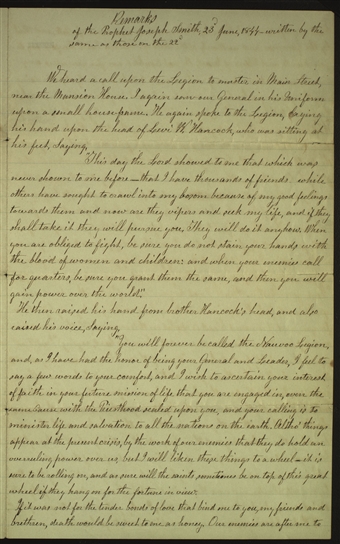 Remarks
of the Prophet Joseph Smith, 23d June, 1844 - written by the
same as those on the 22d
We heard a call upon the Legion to muster in Main Street,
near the Mansion House. I again saw our General in his Uniform
upon a small house frame. He again spoke to the Legion, Laying
his hand upon the head of Levi W Hancock, who was sitting at
his feet, saying,
"This day the Lord showed to me that which was
never shown to me before - that I have thousands of friends while
others have sought to crawl into my bosom because of my good feelings
towards them and now are they vipers and seek my life, and if they
shall take it they will pursue you, They will do it anyhow. When
you are obliged to fight, be sure you do not stain your hands with
the blood of women and children: and when your enemies call
for quarters, be sure you grant them the same, and then you will
gain power over the world."
He then raised his hand from brother Hancock's head, and also
raised his voice, saying,
"You will forever be called the Nauvoo Legion,
and, as I have had the honor of being your General and Leader, I feel to
say a few words to your comfort, and I wish to ascertain your interest
of faith in your future mission of life that you are engaged in, ever the
same cause with the Priesthood sealed upon you, and your calling is to
minister life and salvation to all the nations on the earth. Altho' things
appear at the present crisis, by the work of our enemies that they do hold an
overruling power over us, but I will liken these things to a wheel - it is
sure to be rolling on, and as sure will the saints sometimes be on top of this great
wheel if they hang on for the fortune in view.
If it was not for the tender bonds of love that bind me to you, my friends and
brethren, death would be sweet to me as honey. Our enemies are after me to